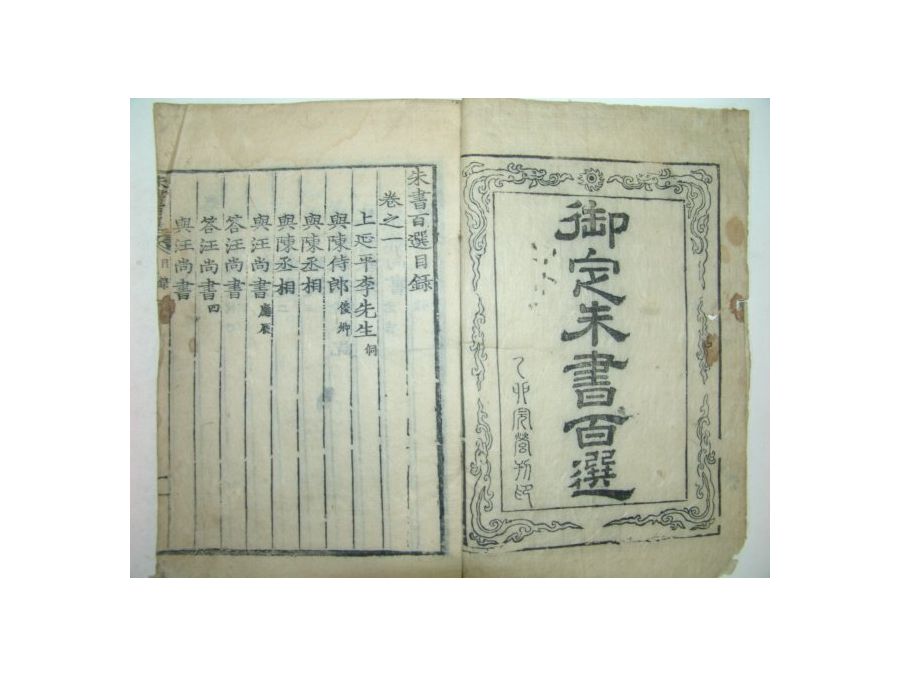 御定朱書百選
乙卯完營刊印
朱書百選目錄
卷之一
上延平李先生 侗
與陳侍郎 俊卿
與陳丞相
與陳丞相
與汪尚書 應辰
答汪尚書
答汪尚書 四
與汪尚書
目錄